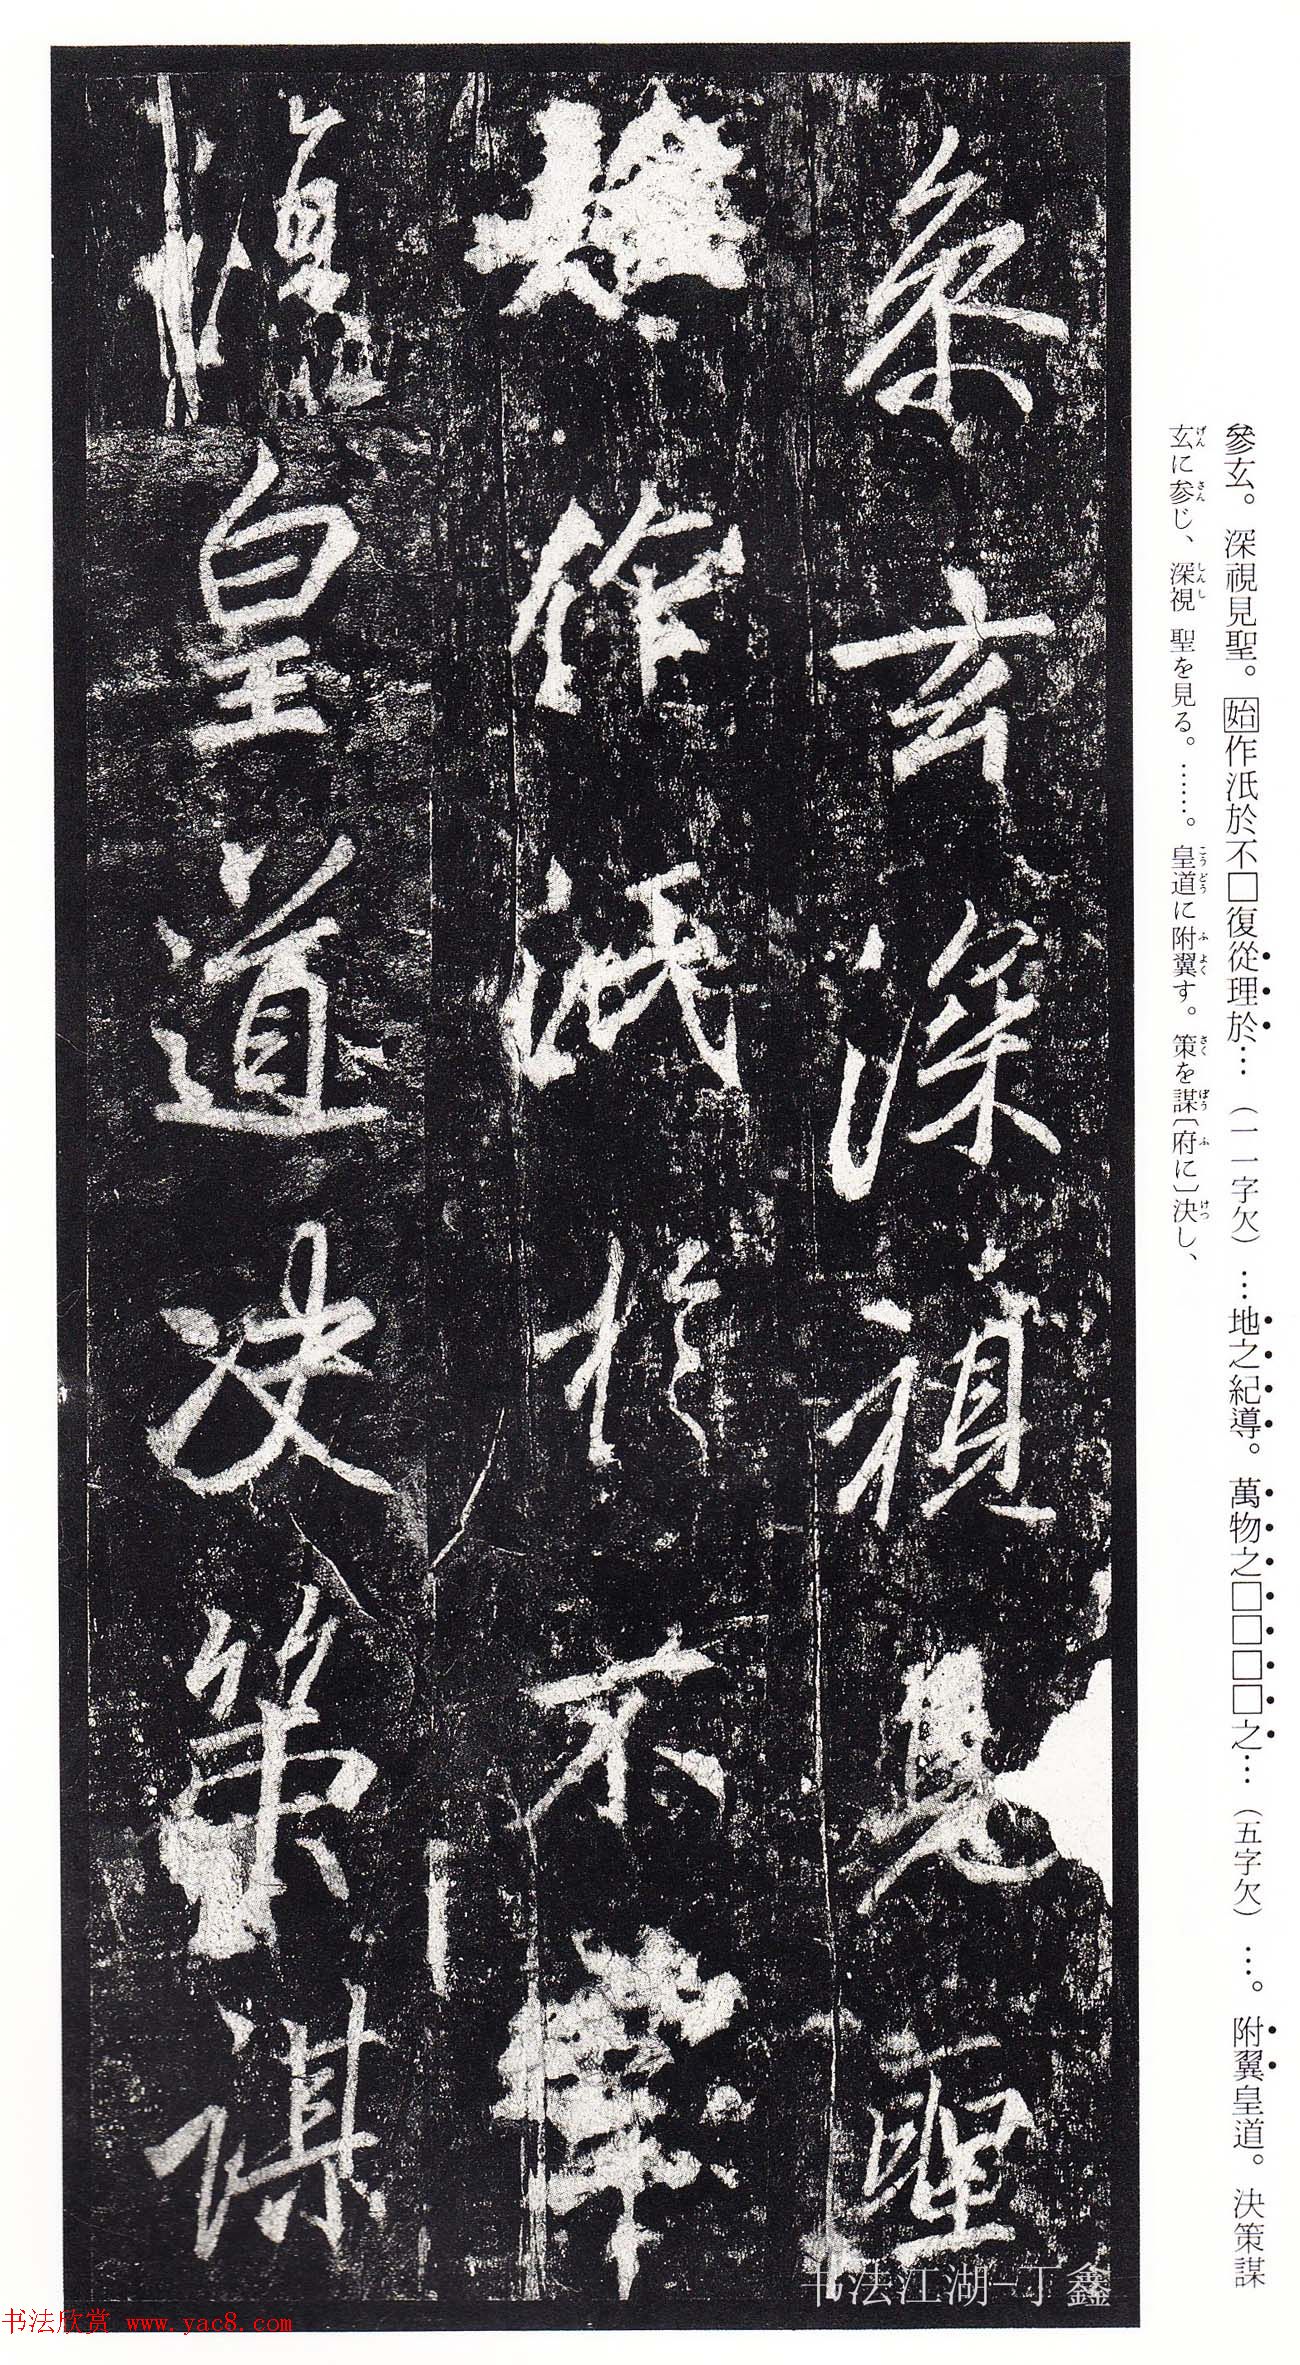 參玄。深視見聖。始作汦於不□復從理於…（一一字欠）…地之紀導。萬物之□□□□之…（五字欠）…。附翼皇道。決策謀
玄に参じ、深視 聖を見る。……。皇道に附翼す。策を謀〔府に〕決し、
叅玄深視見聖
始作汦於不
復皇道決策謀
书法江湖-丁鑫
书法欣赏 www.yac8.com